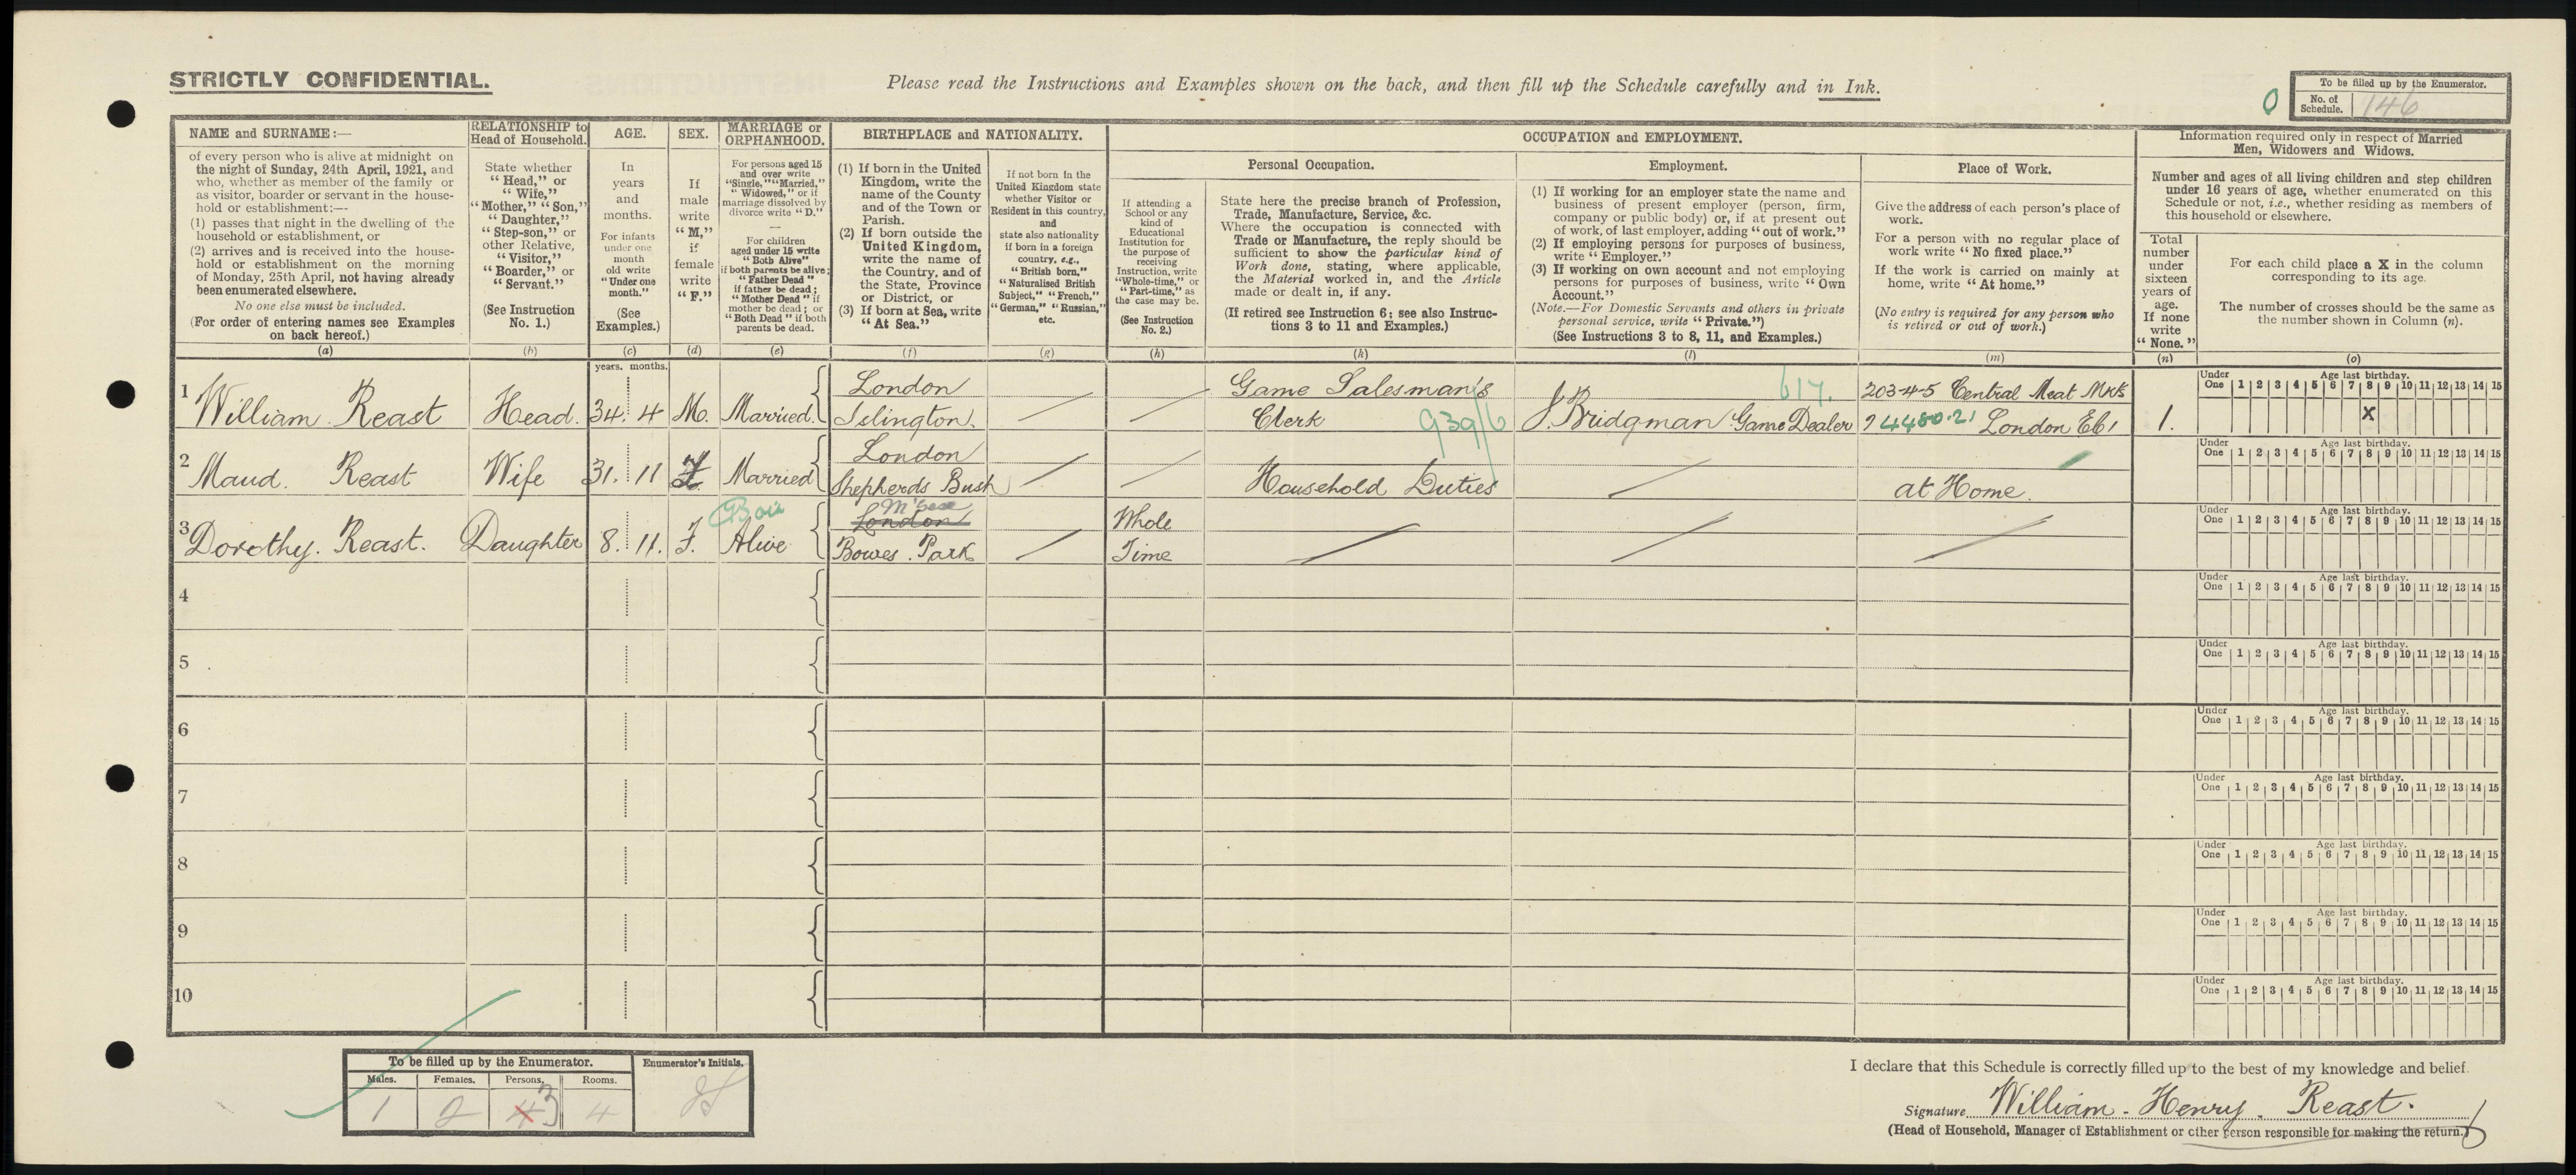 STRICTLY CONFIDENTIAL.
Please read the Instructions and Examples shown on the back, and then fill up the Schedule carefully and in Ink.
To be filled up by the Enumerator.
No. of Schedule. 146
0
NAME and SURNAME:—
of every person who is alive at midnight on
the night of Sunday, 24th April, 1921, and
who, whether as member of the family or
as visitor, boarder or servant in the house-
hold or establishment:—
(1) passes that night in the dwelling of the
household or establishment, or
(2) arrives and is received into the house-
hold or establishment on the morning
of Monday, 25th April, not having already
been enumerated elsewhere.
No one else must be included.
(For order of entering names see Examples
on back hereof.)
(a)
RELATIONSHIP to
Head of Household.
State whether
"Head," or
"Wife,"
"Mother," "Son,"
"Daughter,"
"Step-son," or
other Relative,
"Visitor,"
"Boarder," or
"Servant."
(See Instruction
No. 1.)
(b)
AGE.
In
years
and
months.
For infants
under one
month
old write
"Under one
month."
(See
Examples.)
(c)
SEX.
If
male
write
"M,"
if
female
write
"F."
(d)
MARRIAGE or
ORPHANHOOD.
For persons aged 15
and over write
"Single," "Married,"
"Widowed," or if
marriage dissolved by
divorce write "D."
—
For children
aged under 15 write
"Both Alive"
if both parents be alive;
"Father Dead"
if father be dead;
"Mother Dead" if
mother be dead; or
"Both Dead" if both
parents be dead.
(e)
BIRTHPLACE and NATIONALITY.
(1) If born in the United
Kingdom, write the
name of the County
and of the Town or
Parish.
(2) If born outside the
United Kingdom,
write the name of
the Country, and of
the State, Province
or District, or
(3) If born at Sea, write
"At Sea."
(f)
If not born in the
United Kingdom state
whether Visitor or
Resident in this country,
and
state also nationality
if born in a foreign
country, e.g.,
"British born,"
"Naturalised British
Subject," "French,"
"German," "Russian,"
etc.
(g)
OCCUPATION and EMPLOYMENT.
If attending a
School or any
kind of
Educational
Institution for
the purpose of
receiving
Instruction, write
"Whole-time," or
"Part-time," as
the case may be.
(See Instruction
No. 2.)
(h)
Personal Occupation.
State here the precise branch of Profession,
Trade, Manufacture, Service, &c.
Where the occupation is connected with
Trade or Manufacture, the reply should be
sufficient to show the particular kind of
Work done, stating, where applicable,
the Material worked in, and the Article
made or dealt in, if any.
(If retired see Instruction 6; see also Instruc-
tions 3 to 11 and Examples.)
(k)
Employment.
(1) If working for an employer state the name and
business of present employer (person, firm,
company or public body) or, if at present out
of work, of last employer, adding "out of work."
(2) If employing persons for purposes of business,
write "Employer."
(3) If working on own account and not employing
persons for purposes of business, write "Own
Account."
(Note.—For Domestic Servants and others in private
personal service, write "Private.")
(See Instructions 3 to 8, 11, and Examples.)
(l)
Place of Work.
Give the address of each person's place of
work.
For a person with no regular place of
work write "No fixed place."
If the work is carried on mainly at
home, write "At home."
(No entry is required for any person who
is retired or out of work.)
(m)
Information required only in respect of Married
Men, Widowers and Widows.
Number and ages of all living children and step children
under 16 years of age, whether enumerated on this
Schedule or not, i.e., whether residing as members of
this household or elsewhere.
Total
number
under
sixteen
years of
age.
If none
write
"None."
(n)
For each child place a X in the column
corresponding to its age.
The number of crosses should be the same as
the number shown in Column (n).
(o)
years. months.
1 William Reast Head. 34. 4 M. Married. London
Islington.
Game Salesman's
Clerk 939/6
J. Bridgman Game Dealer 617.
203-4-5 Central Meat Mkts
4480.21 London EC1
1.
Under One Age last birthday. 1 2 3 4 5 6 7 8 9 10 11 12 13 14 15
X
2 Maud. Reast Wife 31. 11 F. Married London
Shepherds Bush
Household Duties
at Home.
Under One Age last birthday. 1 2 3 4 5 6 7 8 9 10 11 12 13 14 15
3 Dorothy. Reast. Daughter 8. 11. F. Alive
London
Bowes. Park
Whole
Time
Under One Age last birthday. 1 2 3 4 5 6 7 8 9 10 11 12 13 14 15
4
Under One Age last birthday. 1 2 3 4 5 6 7 8 9 10 11 12 13 14 15
5
Under One Age last birthday. 1 2 3 4 5 6 7 8 9 10 11 12 13 14 15
6
Under One Age last birthday. 1 2 3 4 5 6 7 8 9 10 11 12 13 14 15
7
Under One Age last birthday. 1 2 3 4 5 6 7 8 9 10 11 12 13 14 15
8
Under One Age last birthday. 1 2 3 4 5 6 7 8 9 10 11 12 13 14 15
9
Under One Age last birthday. 1 2 3 4 5 6 7 8 9 10 11 12 13 14 15
10
Under One Age last birthday. 1 2 3 4 5 6 7 8 9 10 11 12 13 14 15
To be filled up by the Enumerator.
Males. Females. Persons. Rooms.
1 2 4 3 4
Enumerator's Initials.
I declare that this Schedule is correctly filled up to the best of my knowledge and belief.
Signature William. Henry. Reast.
(Head of Household, Manager of Establishment or other person responsible for making the return.)